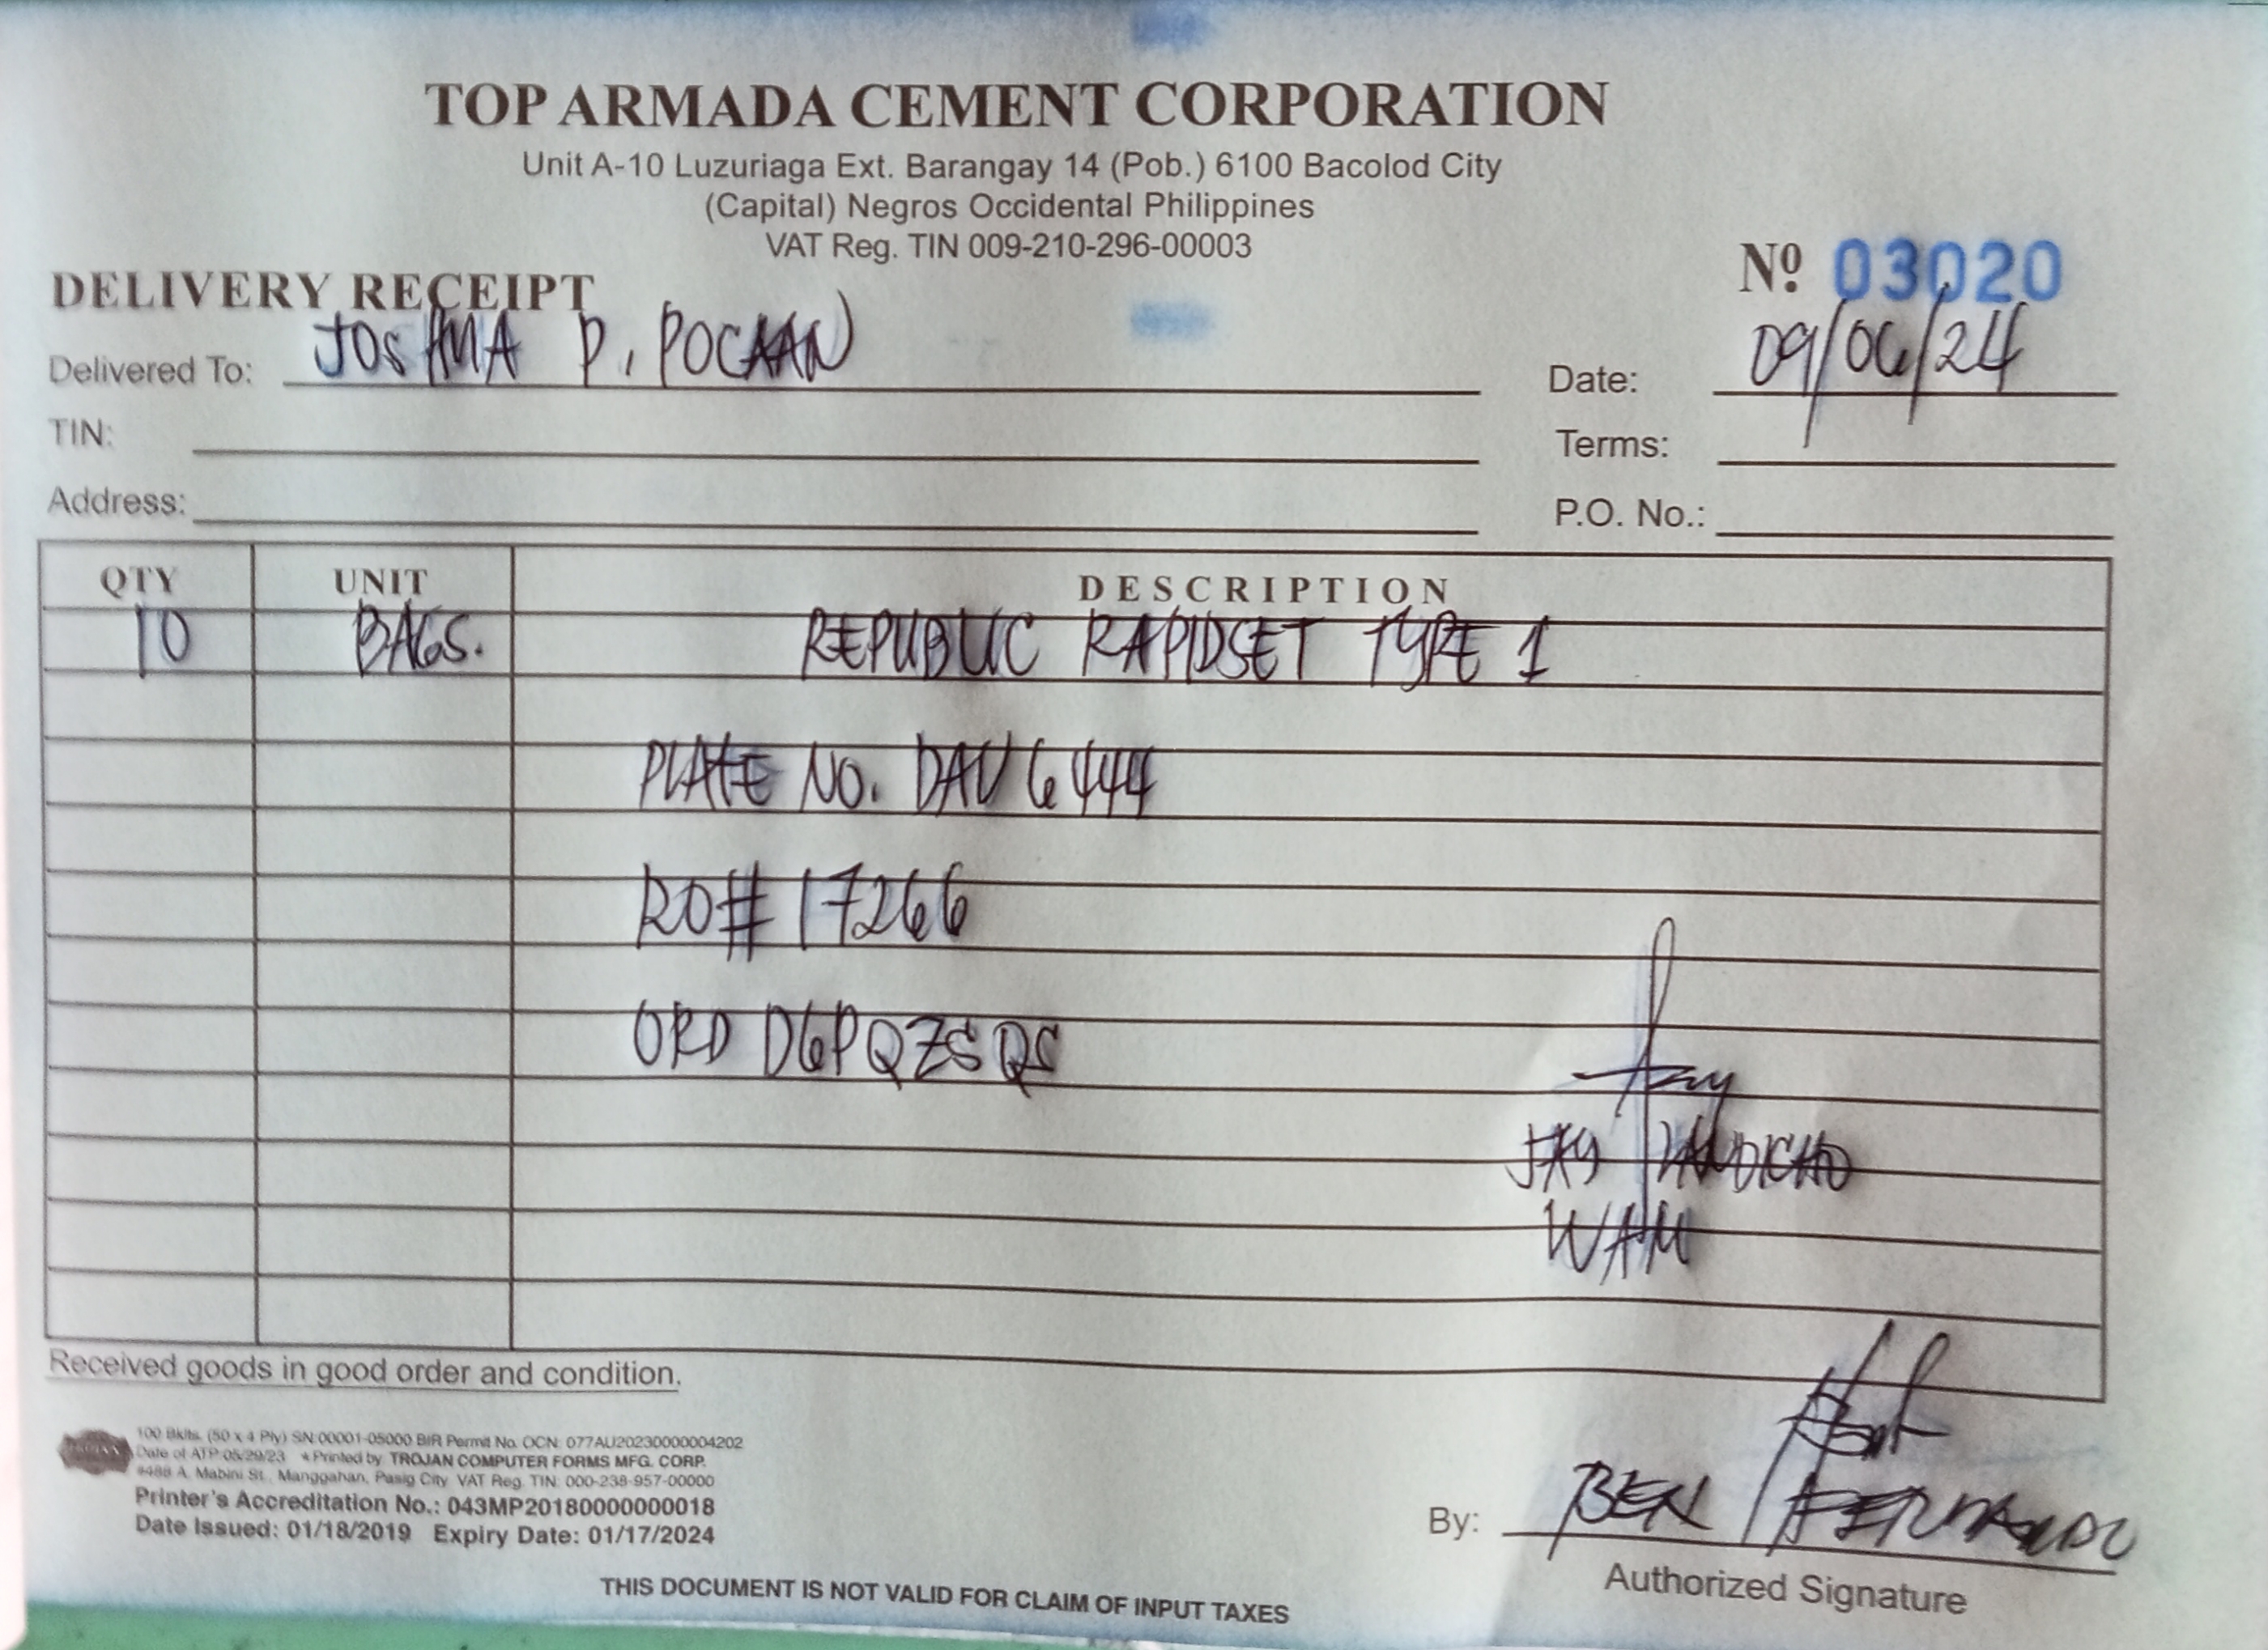 TOP ARMADA CEMENT CORPORATION
Unit A-10 Luzuriaga Ext. Barangay 14 (Pob.) 6100 Bacolod City
(Capital) Negros Occidental Philippines
VAT Reg. TIN 009-210-296-00003
DELIVERY RECEIPT
Nº 03020
Delivered To: JOSHUA P. POCAAN
Date: 09/06/24
TIN:
Terms:
Address:
P.O. No.:
QTY UNIT DESCRIPTION
10 BAGS. REPUBLIC RAPIDSET TYPE 1
PLATE NO. DAV 6444
RO# 17266
ORD D6PQZSQS
JAY
WAM
Received goods in good order and condition.
100 Bklts. (50 x 4 Ply) SN:00001-05000 BIR Permit No. OCN: 077AU20230000004202
Date of ATP:05/29/23 * Printed by TROJAN COMPUTER FORMS MFG. CORP.
#488 A. Mabini St., Manggahan, Pasig City VAT Reg. TIN: 000-238-957-00000
Printer's Accreditation No.: 043MP20180000000018
Date Issued: 01/18/2019 Expiry Date: 01/17/2024
By: BEN FERNANDO
Authorized Signature
THIS DOCUMENT IS NOT VALID FOR CLAIM OF INPUT TAXES